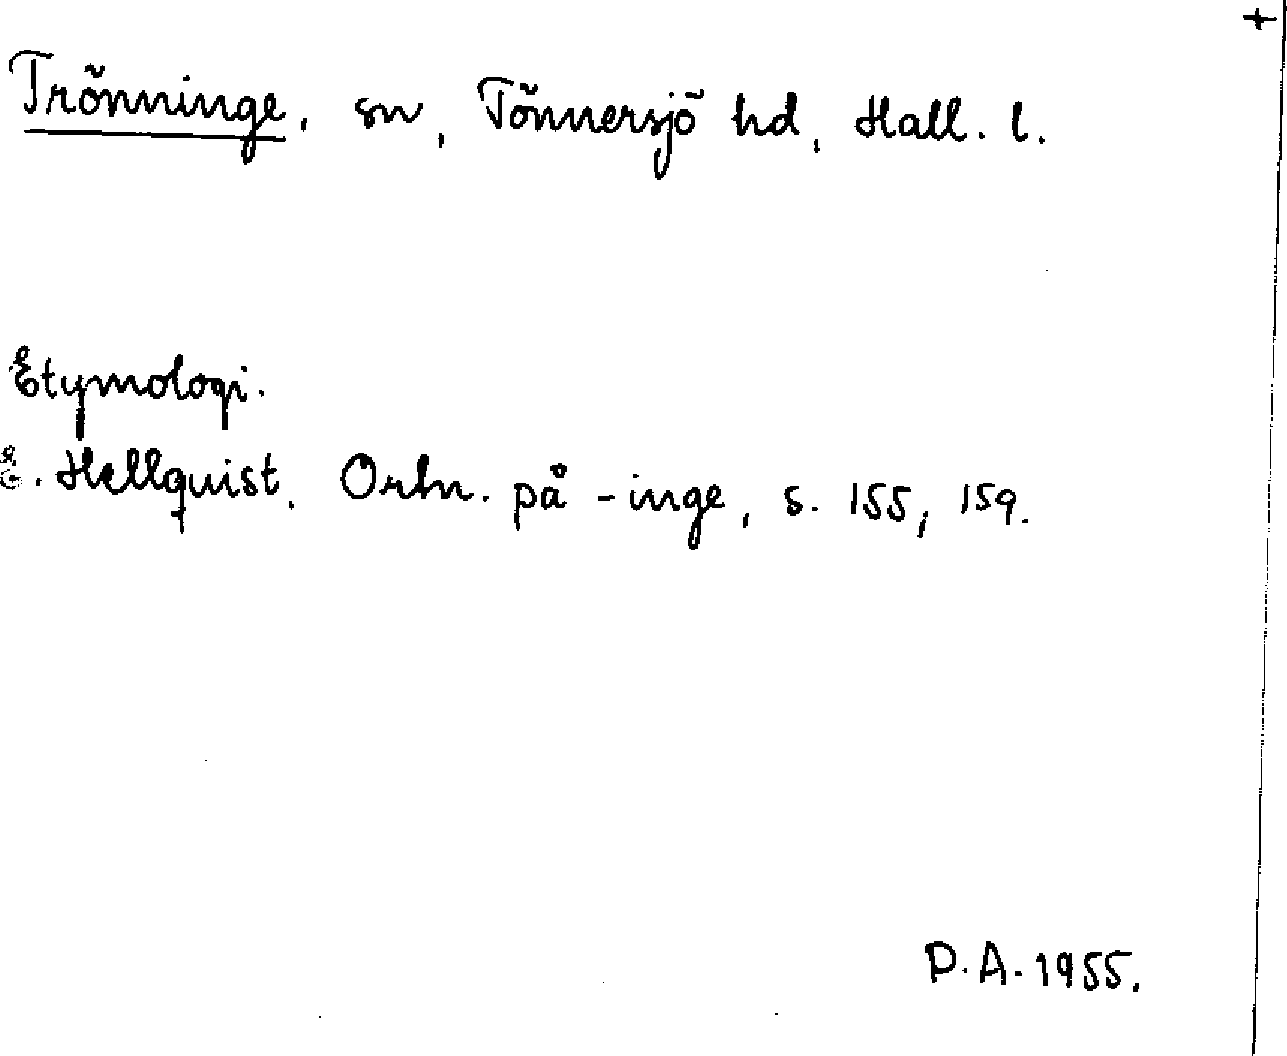 +
Trönninge, sn, Tönnersjö hd, Hall. l.
Etymologi.
E. Hellquist, Ortn. på -inge, s. 155, 159.
P.A. 1955.